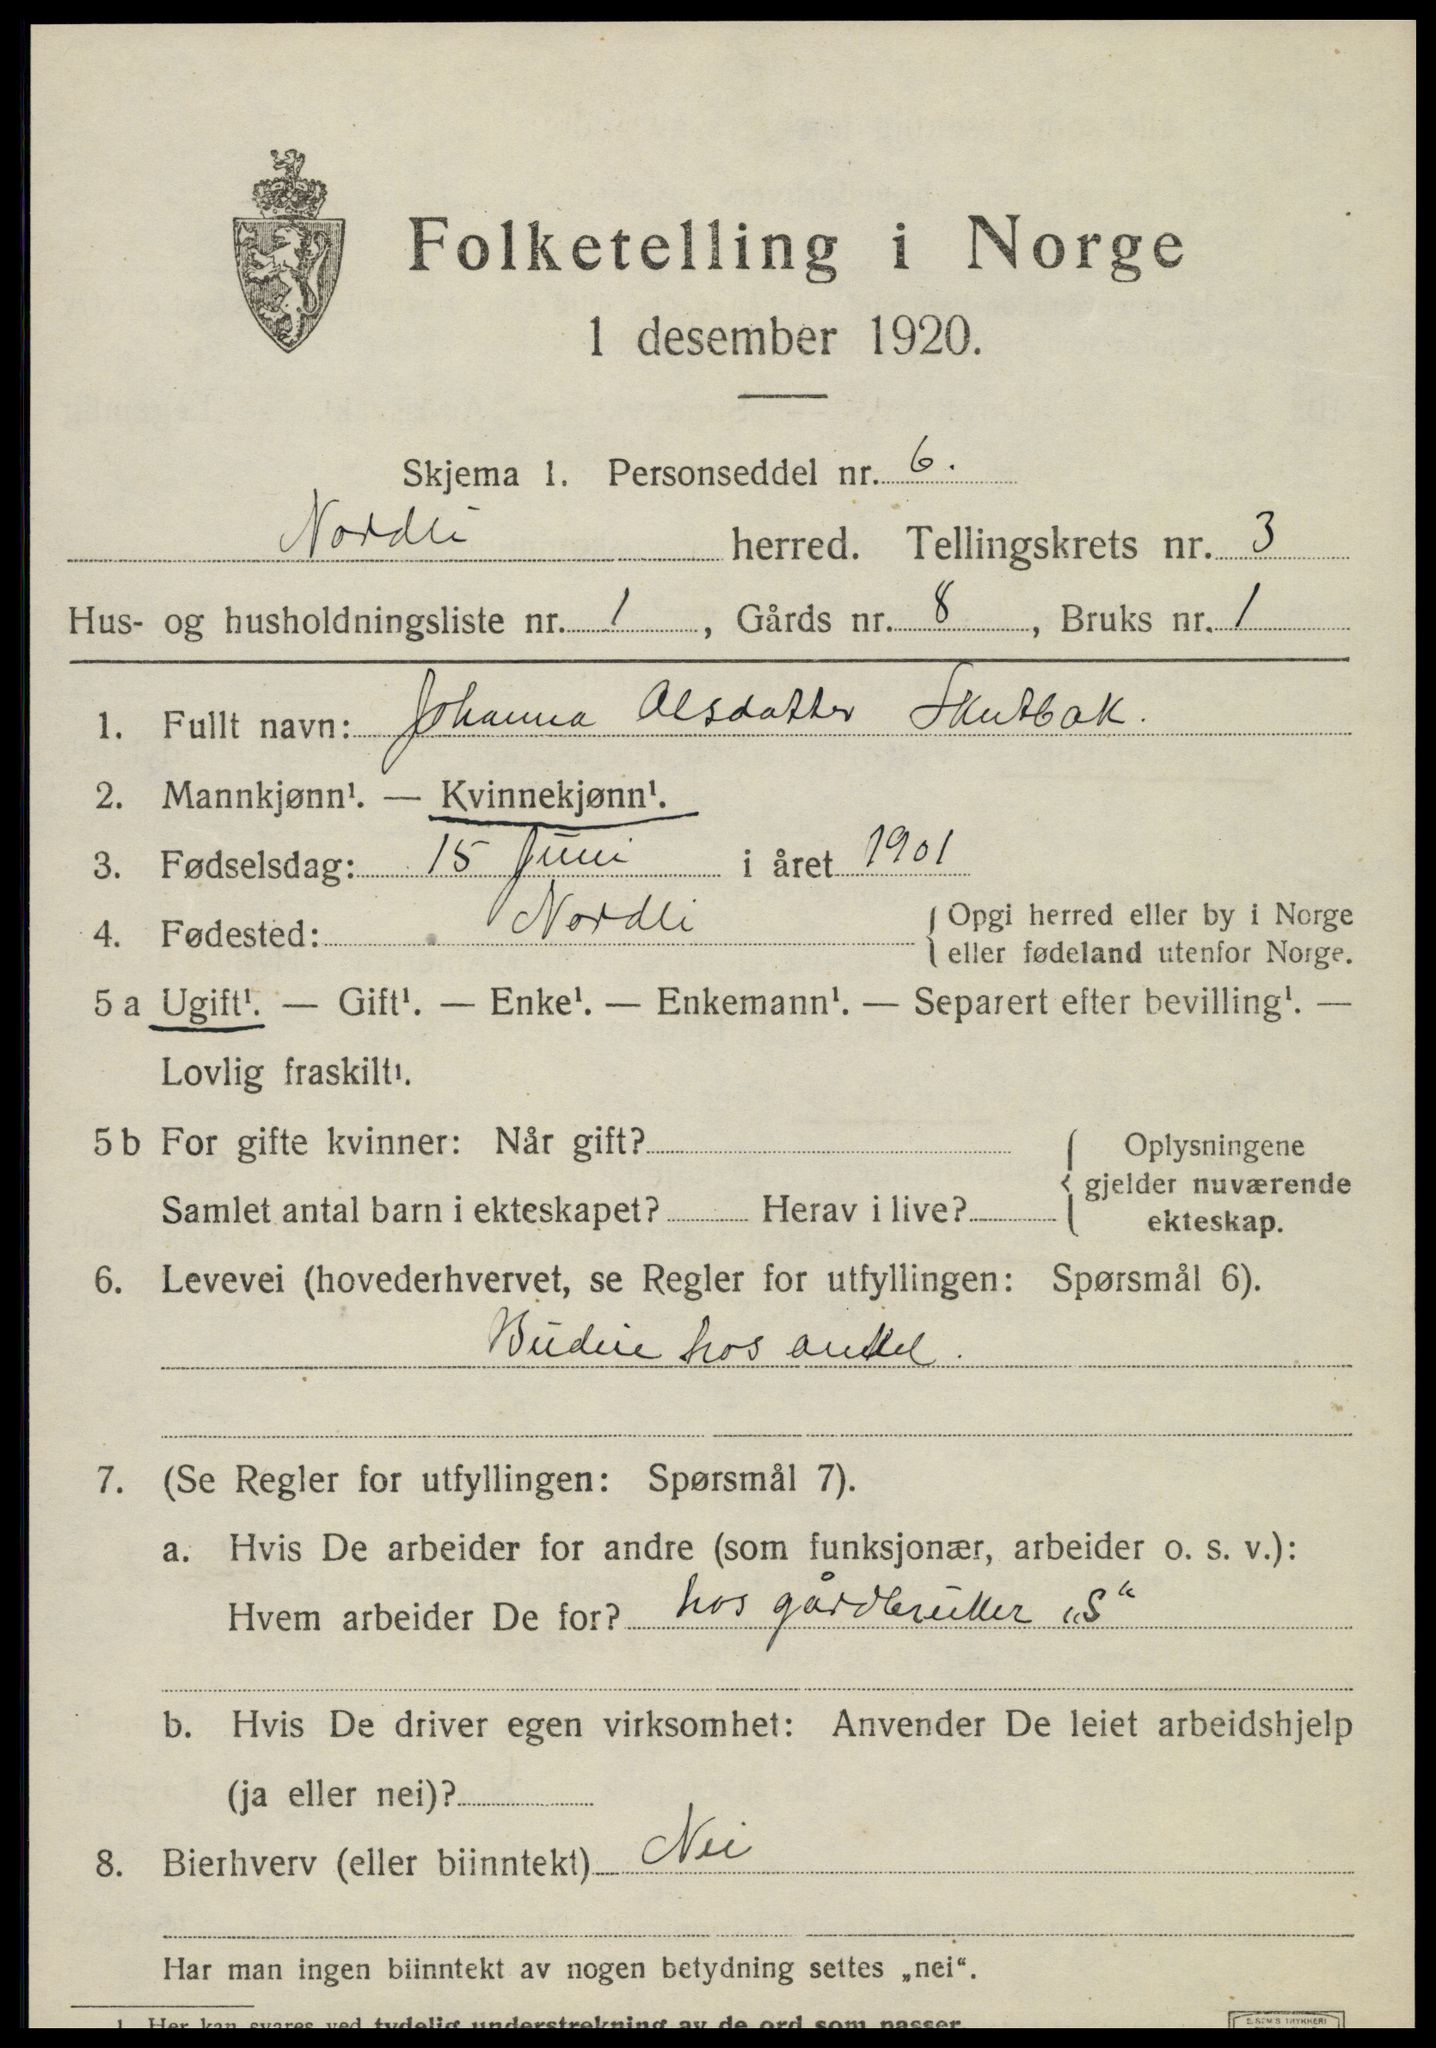 Folketelling i Norge
1 desember 1920.
Skjema 1. Personseddel nr. 6.
Nordli herred. Tellingskrets nr. 3
Hus- og husholdningsliste nr. 1, Gårds nr. 8, Bruks nr. 1
1. Fullt navn: Johanna Olsdatter Skutbak.
2. Mannkjønn¹. — Kvinnekjønn¹.
3. Fødselsdag: 15 Juni i året 1901
4. Fødested: Nordli { Opgi herred eller by i Norge
eller fødeland utenfor Norge.
5 a Ugift¹. — Gift¹. — Enke¹. — Enkemann¹. — Separert efter bevilling¹. —
Lovlig fraskilt¹.
5 b For gifte kvinner: Når gift? { Oplysningene
gjelder nuværende
Samlet antal barn i ekteskapet? Herav i live? ekteskap.
6. Levevei (hovederhvervet, se Regler for utfyllingen: Spørsmål 6).
Budeie hos onkel.
7. (Se Regler for utfyllingen: Spørsmål 7).
a. Hvis De arbeider for andre (som funksjonær, arbeider o. s. v.):
Hvem arbeider De for? hos gårdbruker „S“
b. Hvis De driver egen virksomhet: Anvender De leiet arbeidshjelp
(ja eller nei)?
8. Bierhverv (eller biinntekt) Nei
Har man ingen biinntekt av nogen betydning settes „nei“.
1 Her kan svares ved tydelig understrekning av de ord som passer